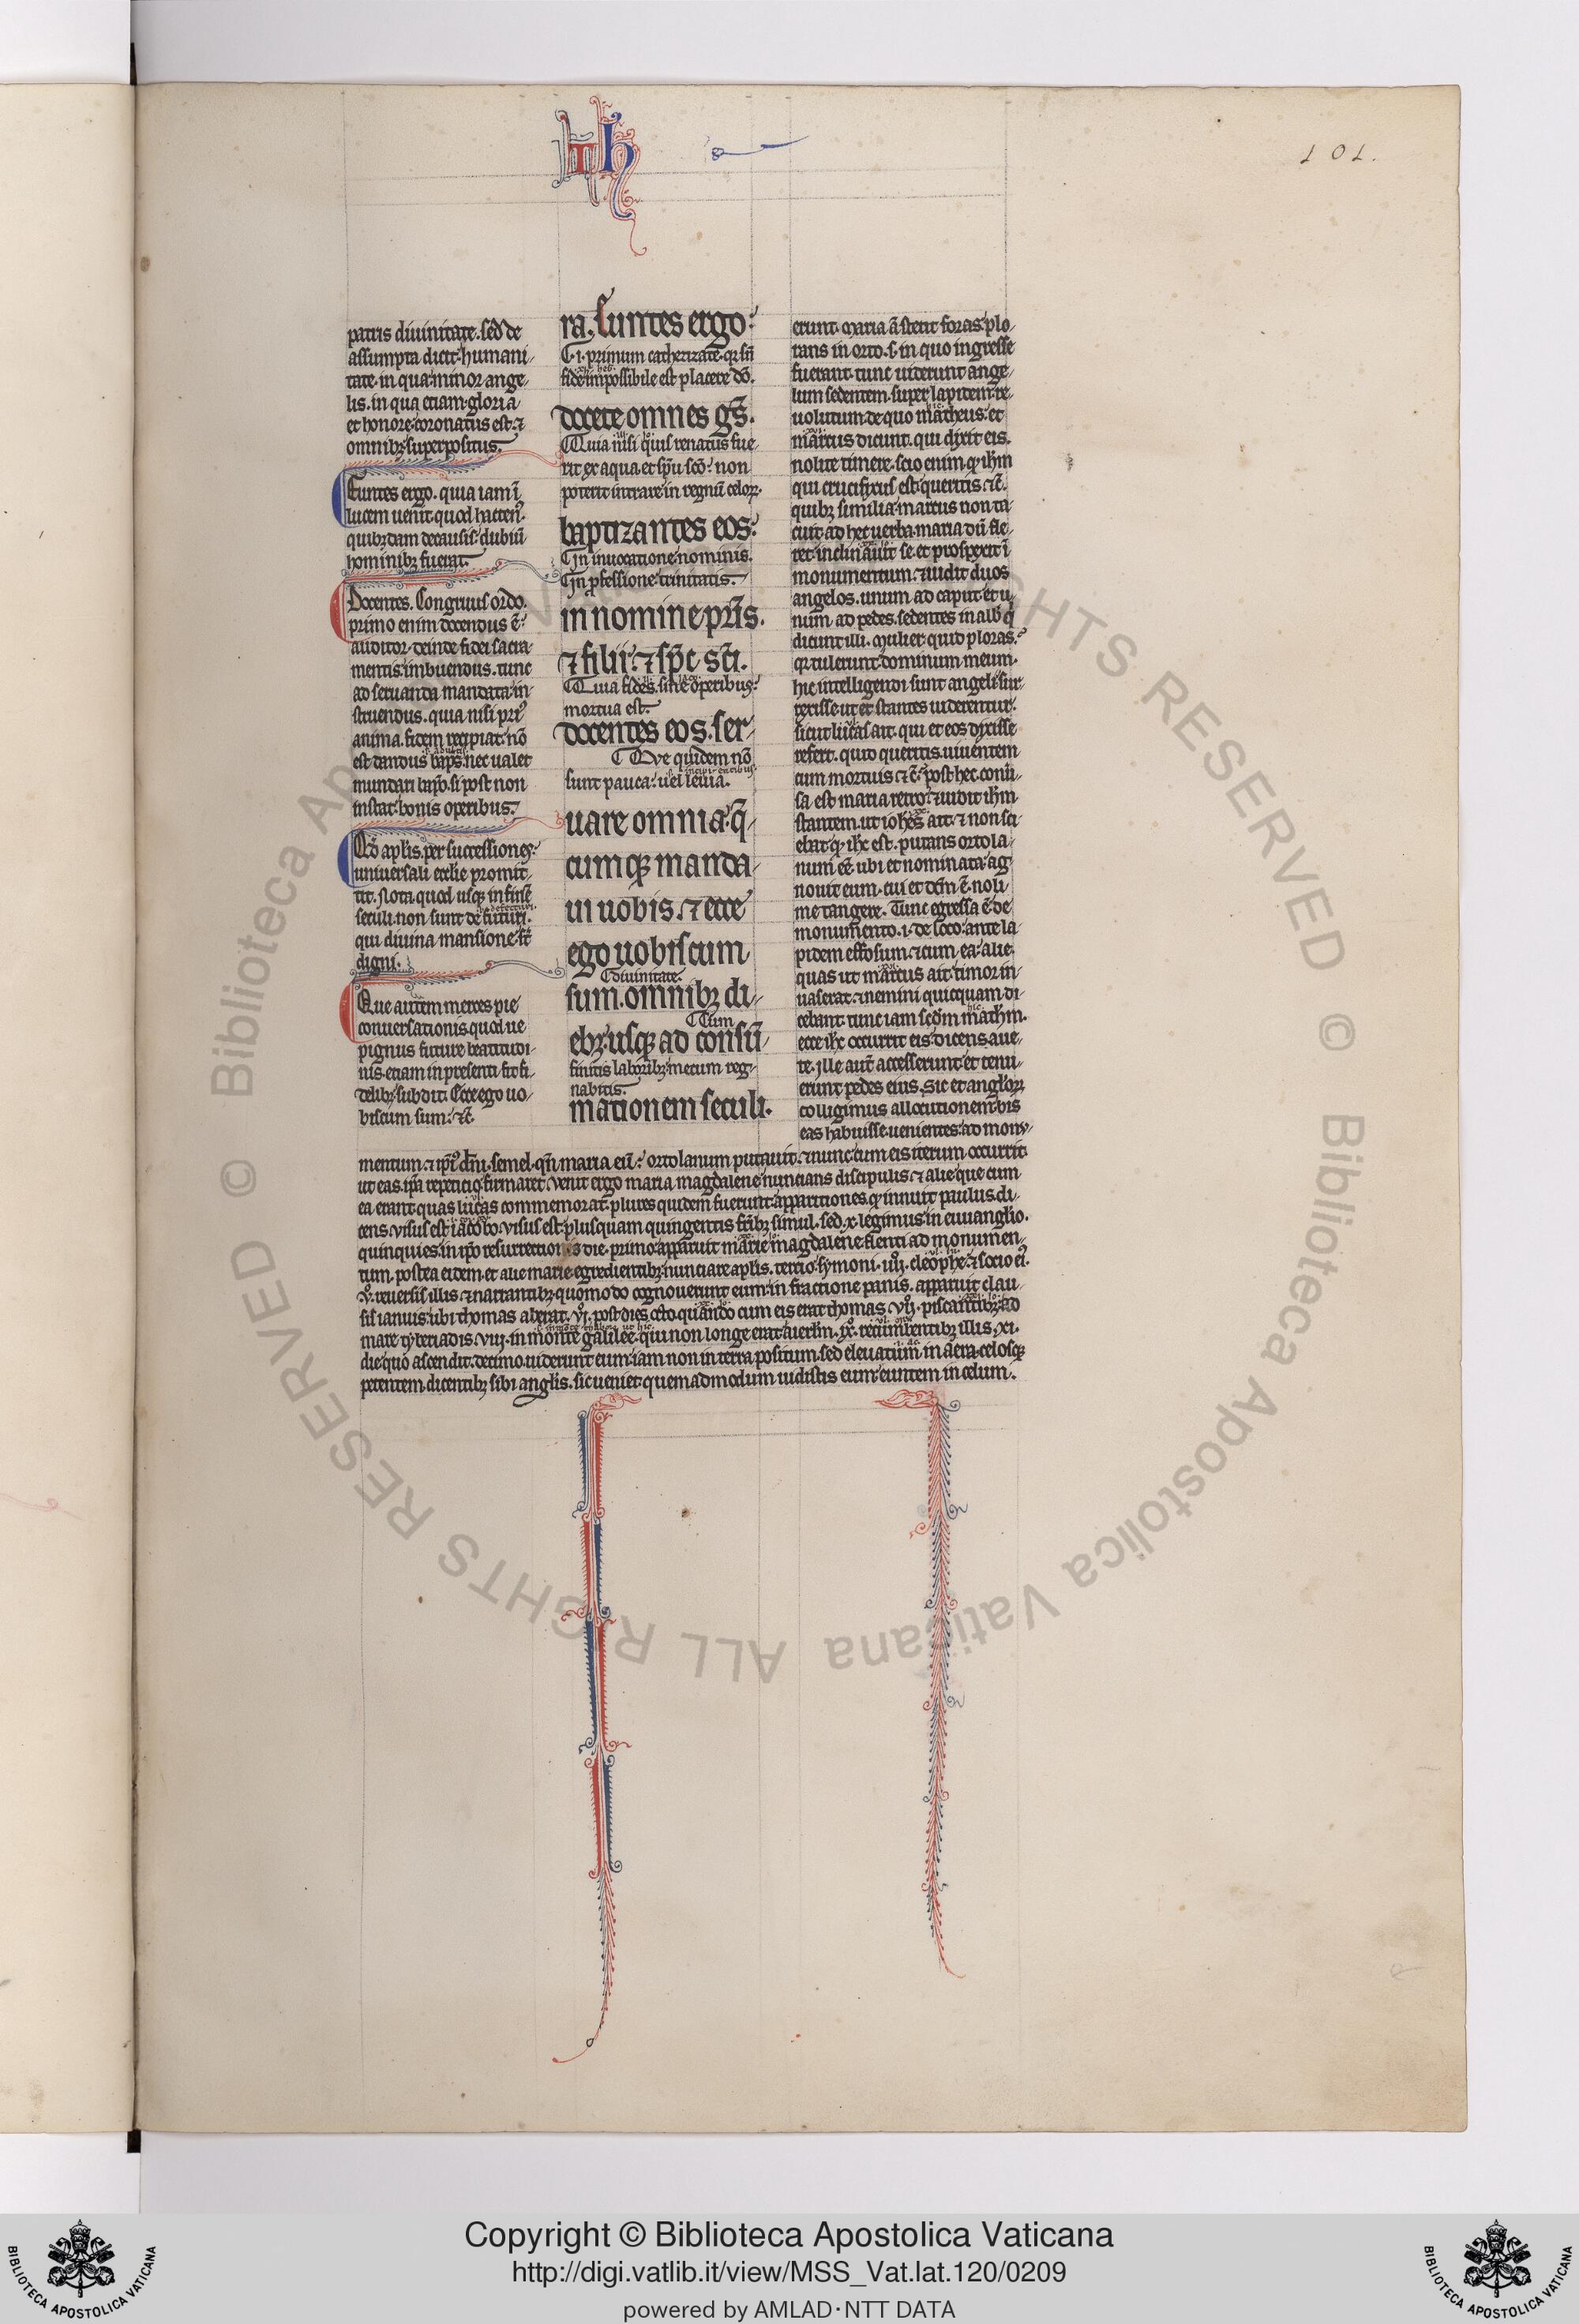 101.
patris diuinitate. sed de
assumpta dicit humani-
tate. in qua minor ange-
lis. in qua etiam gloria
et honore coronatus est. ⁊
omnibꝫ superpositus.
Euntes ergo. quia iam ī
lucem uenit quod hacten᷒
quibꝫdam de causis dubiū
hominibꝫ fuerat.
Docentes. Congruus ordo.
primo enim docendus ē
auditor. deinde fidei sacra-
mentis imbuendus. tunc
ad seruanda mandata in-
struendus. quia nisi pri᷒
anima fidem recipiat. nō
est dandus bapꝭ. nec ualet
mundari bapꝭo. si post non
instat bonis operibus.
Qđ aplis. per successiones
uniuersali ecclie promit-
tit. Nota quod usqꝫ in finē
seculi. non sunt defuturi.
qui diuina mansione sīt
digni.
Que autem merces pie
conuersationis. quod ue
pignus future beatitudi-
nis. etiam in presenti sit fi-
delibꝫ. subdit. Ecce ego uo-
biscum sum. ⁊c̄.
ra. Euntes ergo
.i. primum cathezizate. qꝛ sn̄
fide impossibile est placere dō.
docete omnes gs̄.
Quia nisi quis renatus fue-
rit ex aqua et sp̄u scō. non
poterit intrare in regnū celoꝝ.
baptizantes eos
In inuocatione nominis.
In ꝓfessione trinitatis.
in nomine pr̄is.
⁊ filii. ⁊ sp̄c sc̄i.
Quia fides. sine operibus
mortua est.
docentes eos. ser-
Que quidem nō
sunt pauca. uel leuia.
uare omnia. q̄-
cumqꝫ manda-
ui uobis. ⁊ ecce
ego uobiscum
diuinitate.
sum. omnibꝫ di-
Cum
ebꝫ. usqꝫ ad consū-
finitis laboribꝫ. mecum reg-
nabitis.
mationem seculi.
erunt. Maria ā stetit foras plo-
rans in orto. s. in quo ingresse
fuerant. tunc uiderunt ange-
lum sedentem super lapidem re-
uolutum. de quo matheus. et
marcus dicunt. qui dixit eis.
nolite timere. scio enim qꝫ ihm
qui crucifixus est queritis. ⁊c̄.
quibꝫ similia marcus non ta-
cuit. ad hec uerba. maria dū fle-
ret. inclinauit se. et prospexit ī
monumentum. ⁊ uidit duos
angelos. unum ad caput. et u-
num ad pedes. sedentes in alb̄ q̄
dicunt illi. Mulier quid ploras.
qꝛ tulerunt dominum meum.
hic intelligendi sunt angeli sur-
rexisse. ut et stantes uiderentur.
sicut lucas ait. qui et eos dixisse
refert. quid queritis uiuentem
cum mortuis. ⁊c̄. post hec conū-
sa est maria retro. ⁊ uidit ihm
stantem. ut iohes ait. ⁊ non sci-
ebat qꝫ ihc est. putans ortola-
num eē. ubi et nominata. ag-
nouit eum. cui et dcm̄ ē. noli
me tangere. Tunc egressa ē de
monumento .i. de loco. ante la-
pidem effosum. ⁊ cum ea. alie.
quas ut marcus ait. timor in-
uaserat. ⁊ nemini quicquam di-
cebant. tunc iam scd̄m math̄m.
ecce ihc occurrit eis. dicens aue-
te. ille aut̄ accesserunt. et tenu-
erunt pedes eius. Sic et anglorꝫ
colligimus allocutionem. bis
eas habuisse. uenientes ad monu-
mentum. ⁊ ip̄i᷒ dn̄i. semel. qn̄ maria eū ortolanum putauit. ⁊ nunc cum eis iterum occurrit
ut eas. ip̄a repeticio firmaret. Venit ergo maria magdalene nuncians discipulis. ⁊ alie que cum
ea erant. quas lucas commemorat. plures quidem fuerunt apparitiones. qꝫ innuit paulus. di-
cens. uisus est iacobo. uisus est plusquam quingentis fr̄ibꝫ simul. sed .x. legimus in euuanglio.
quinquies. in ip̄o resurrectionis die. primo apparuit marie magdalene flenti ad monumen-
tum. postea eidem. et alie marie. egredientibꝫ nunciare aplis. tercio symoni. iiij. cleophe. ⁊ socio ei᷒.
v. reuersis illis. ⁊ narrantibꝫ quomodo cognouerunt eum in fractione panis. apparuit clau-
sis ianuis. ubi thomas aberat. vj. post dies octo. quando cum eis erat thomas. vij. piscantibꝫ ad
mare tyberiadis. viij. in monte galilee. qui non longe erat a ierłm. ix. recumbentibꝫ illis. xi.
die quo ascendit. decimo. uiderunt eum. iam non in terra positum. sed eleuatum in aera. celosqꝫ
petentem. dicentibꝫ sibi anglis. sic ueniet. quemadmodum uidistis eum euntem in celum.
© Biblioteca Apostolica Vaticana ALL RIGHTS RESERVED
Copyright © Biblioteca Apostolica Vaticana
http://digi.vatlib.it/view/MSS_Vat.lat.120/0209
powered by AMLAD·NTT DATA
BIBLIOTECA APOSTOLICA VATICANA
BIBLIOTECA APOSTOLICA VATICANA